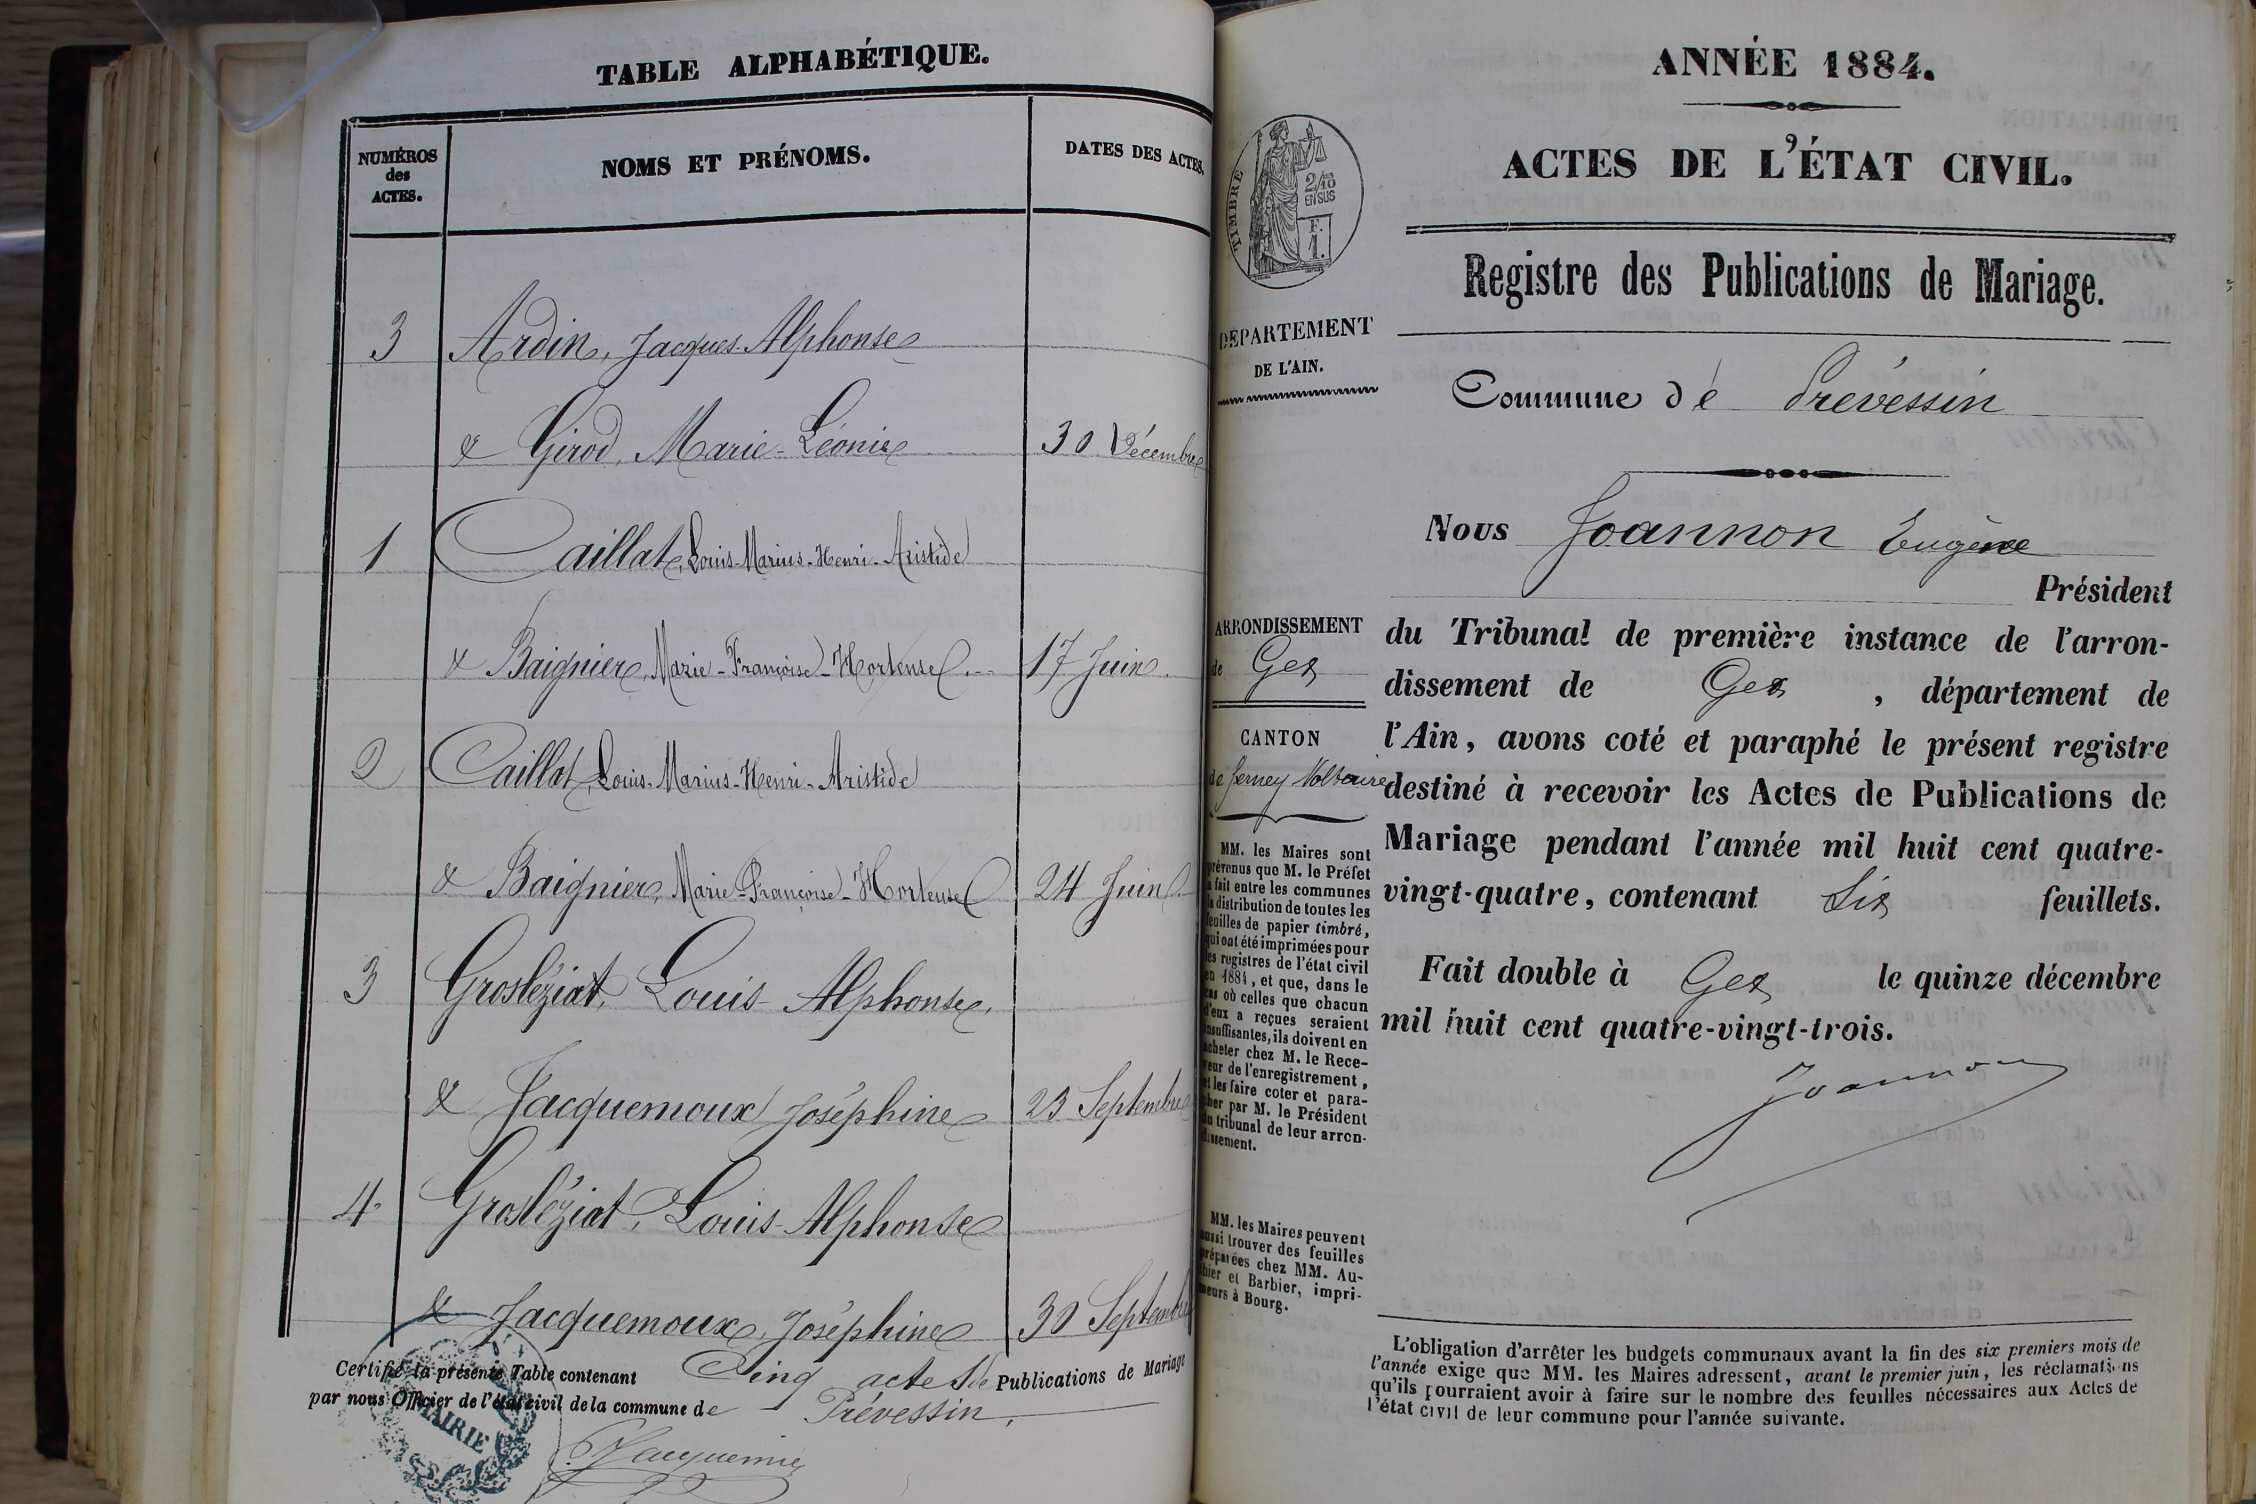 TABLE ALPHABÉTIQUE.
NUMÉROS
des
ACTES.
NOMS ET PRÉNOMS.
DATES DES ACTES.
3 Ardin, Jacques-Alphonse
& Girod, Marie-Léonie 30 Décembre
1 Caillat, Louis-Marius-Henri-Aristide
& Baignier, Marie-Françoise-Hortense 17 Juin.
2 Caillat, Louis-Marius-Henri-Aristide
& Baignier, Marie-Françoise-Hortense 24 Juin
3 Grosléziat, Louis-Alphonse,
& Jacquemoux Joséphine 23 Septembre
4 Grosléziat, Louis-Alphonse
& Jacquemoux, Joséphine 30 Septembre
Certifié la présente Table contenant Cinq actes de Publications de Mariage
par nous Officier de l'état civil de la commune de Prévessin,
MAIRIE
ANNÉE 1884.
ACTES DE L'ÉTAT CIVIL.
TIMBRE
2/10
EN SUS
F.
1.
Registre des Publications de Mariage.
DÉPARTEMENT
DE L'AIN.
Commune de Prévessin
Nous Joannon Eugène
Président
ARRONDISSEMENT
de Gex
du Tribunal de première instance de l'arron-
dissement de Gex, département de
CANTON
de Ferney Voltaire
l'Ain, avons coté et paraphé le présent registre
destiné à recevoir les Actes de Publications de
Mariage pendant l'année mil huit cent quatre-
vingt-quatre, contenant Six feuillets.
Fait double à Gex le quinze décembre
mil huit cent quatre-vingt-trois.
Joannon
MM. les Maires sont
prévenus que M. le Préfet
a fait entre les communes
la distribution de toutes les
feuilles de papier timbré,
qui ont été imprimées pour
les registres de l'état civil
en 1884, et que, dans le
cas où celles que chacun
d'eux a reçues seraient
insuffisantes, ils doivent en
acheter chez M. le Rece-
veur de l'enregistrement,
et les faire coter et para-
pher par M. le Président
du tribunal de leur arron-
dissement.
MM. les Maires peuvent
aussi trouver des feuilles
préparées chez MM. Au-
thier et Barbier, impri-
meurs à Bourg.
L'obligation d'arrêter les budgets communaux avant la fin des six premiers mois de
l'année exige que MM. les Maires adressent, avant le premier juin, les réclamations
qu'ils pourraient avoir à faire sur le nombre des feuilles nécessaires aux Actes de
l'état civil de leur commune pour l'année suivante.